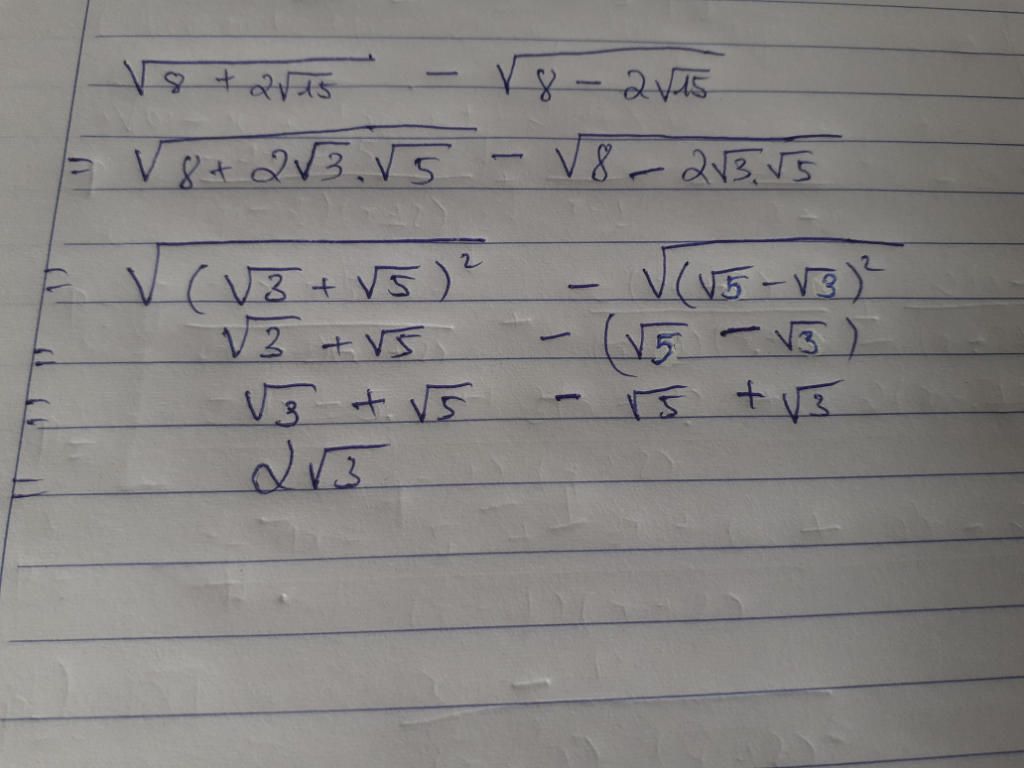 √(8 + 2√15) - √(8 - 2√15)
= √(8 + 2√3.√5) - √(8 - 2√3.√5)
= √((√3 + √5)²) - √((√5 - √3)²)
= √3 + √5 - (√5 - √3)
= √3 + √5 - √5 + √3
= 2√3